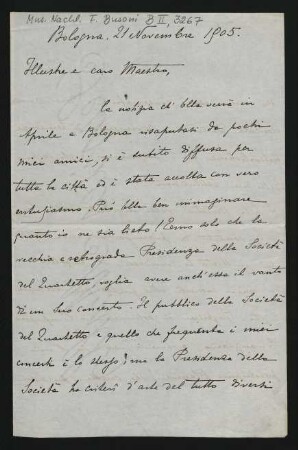 Mus. Nachl. F. Busoni B II, 3267
Bologna, 21 Novembre 1905.
Illustre e caro Maestro,
la notizia ch'Ella verrà in
Aprile a Bologna risaputasi da pochi
miei amici, si è subito diffusa per
tutta la città ed è stata accolta con vero
entusiasmo. Può Ella ben immaginare
quanto io ne sia lieto! Temo solo che la
vecchia e retrograda Presidenza della Società
del Quartetto, voglia avere anch'essa il vanto
di un Suo concerto. Il pubblico della Società
del Quartetto e quello che frequenta i miei
concerti è lo stesso; ma la Presidenza della
Società ha criteri d'arte del tutto diversi